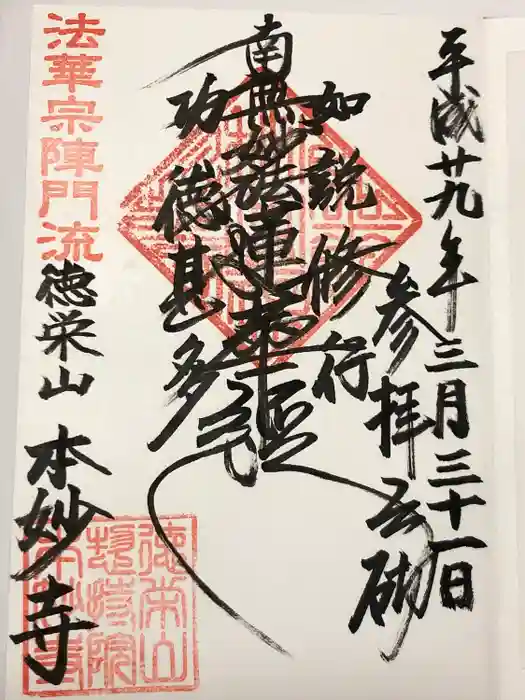 平成廿九年三月三十一日
参拝之砌
如説修行
南無妙法蓮華経
功徳甚多
法華宗陣門流
徳栄山 本妙寺